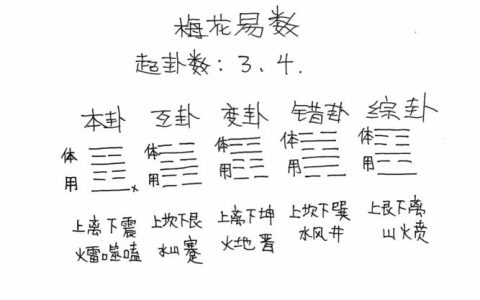 梅花易数
起卦数：3、4.
本卦 互卦 变卦 错卦 综卦
体 体 体 体 体
用 用 用 用 用
上离下震 上坎下艮 上离下坤 上坎下巽 上艮下离
火雷噬嗑 水山蹇 火地晋 水风井 山火贲